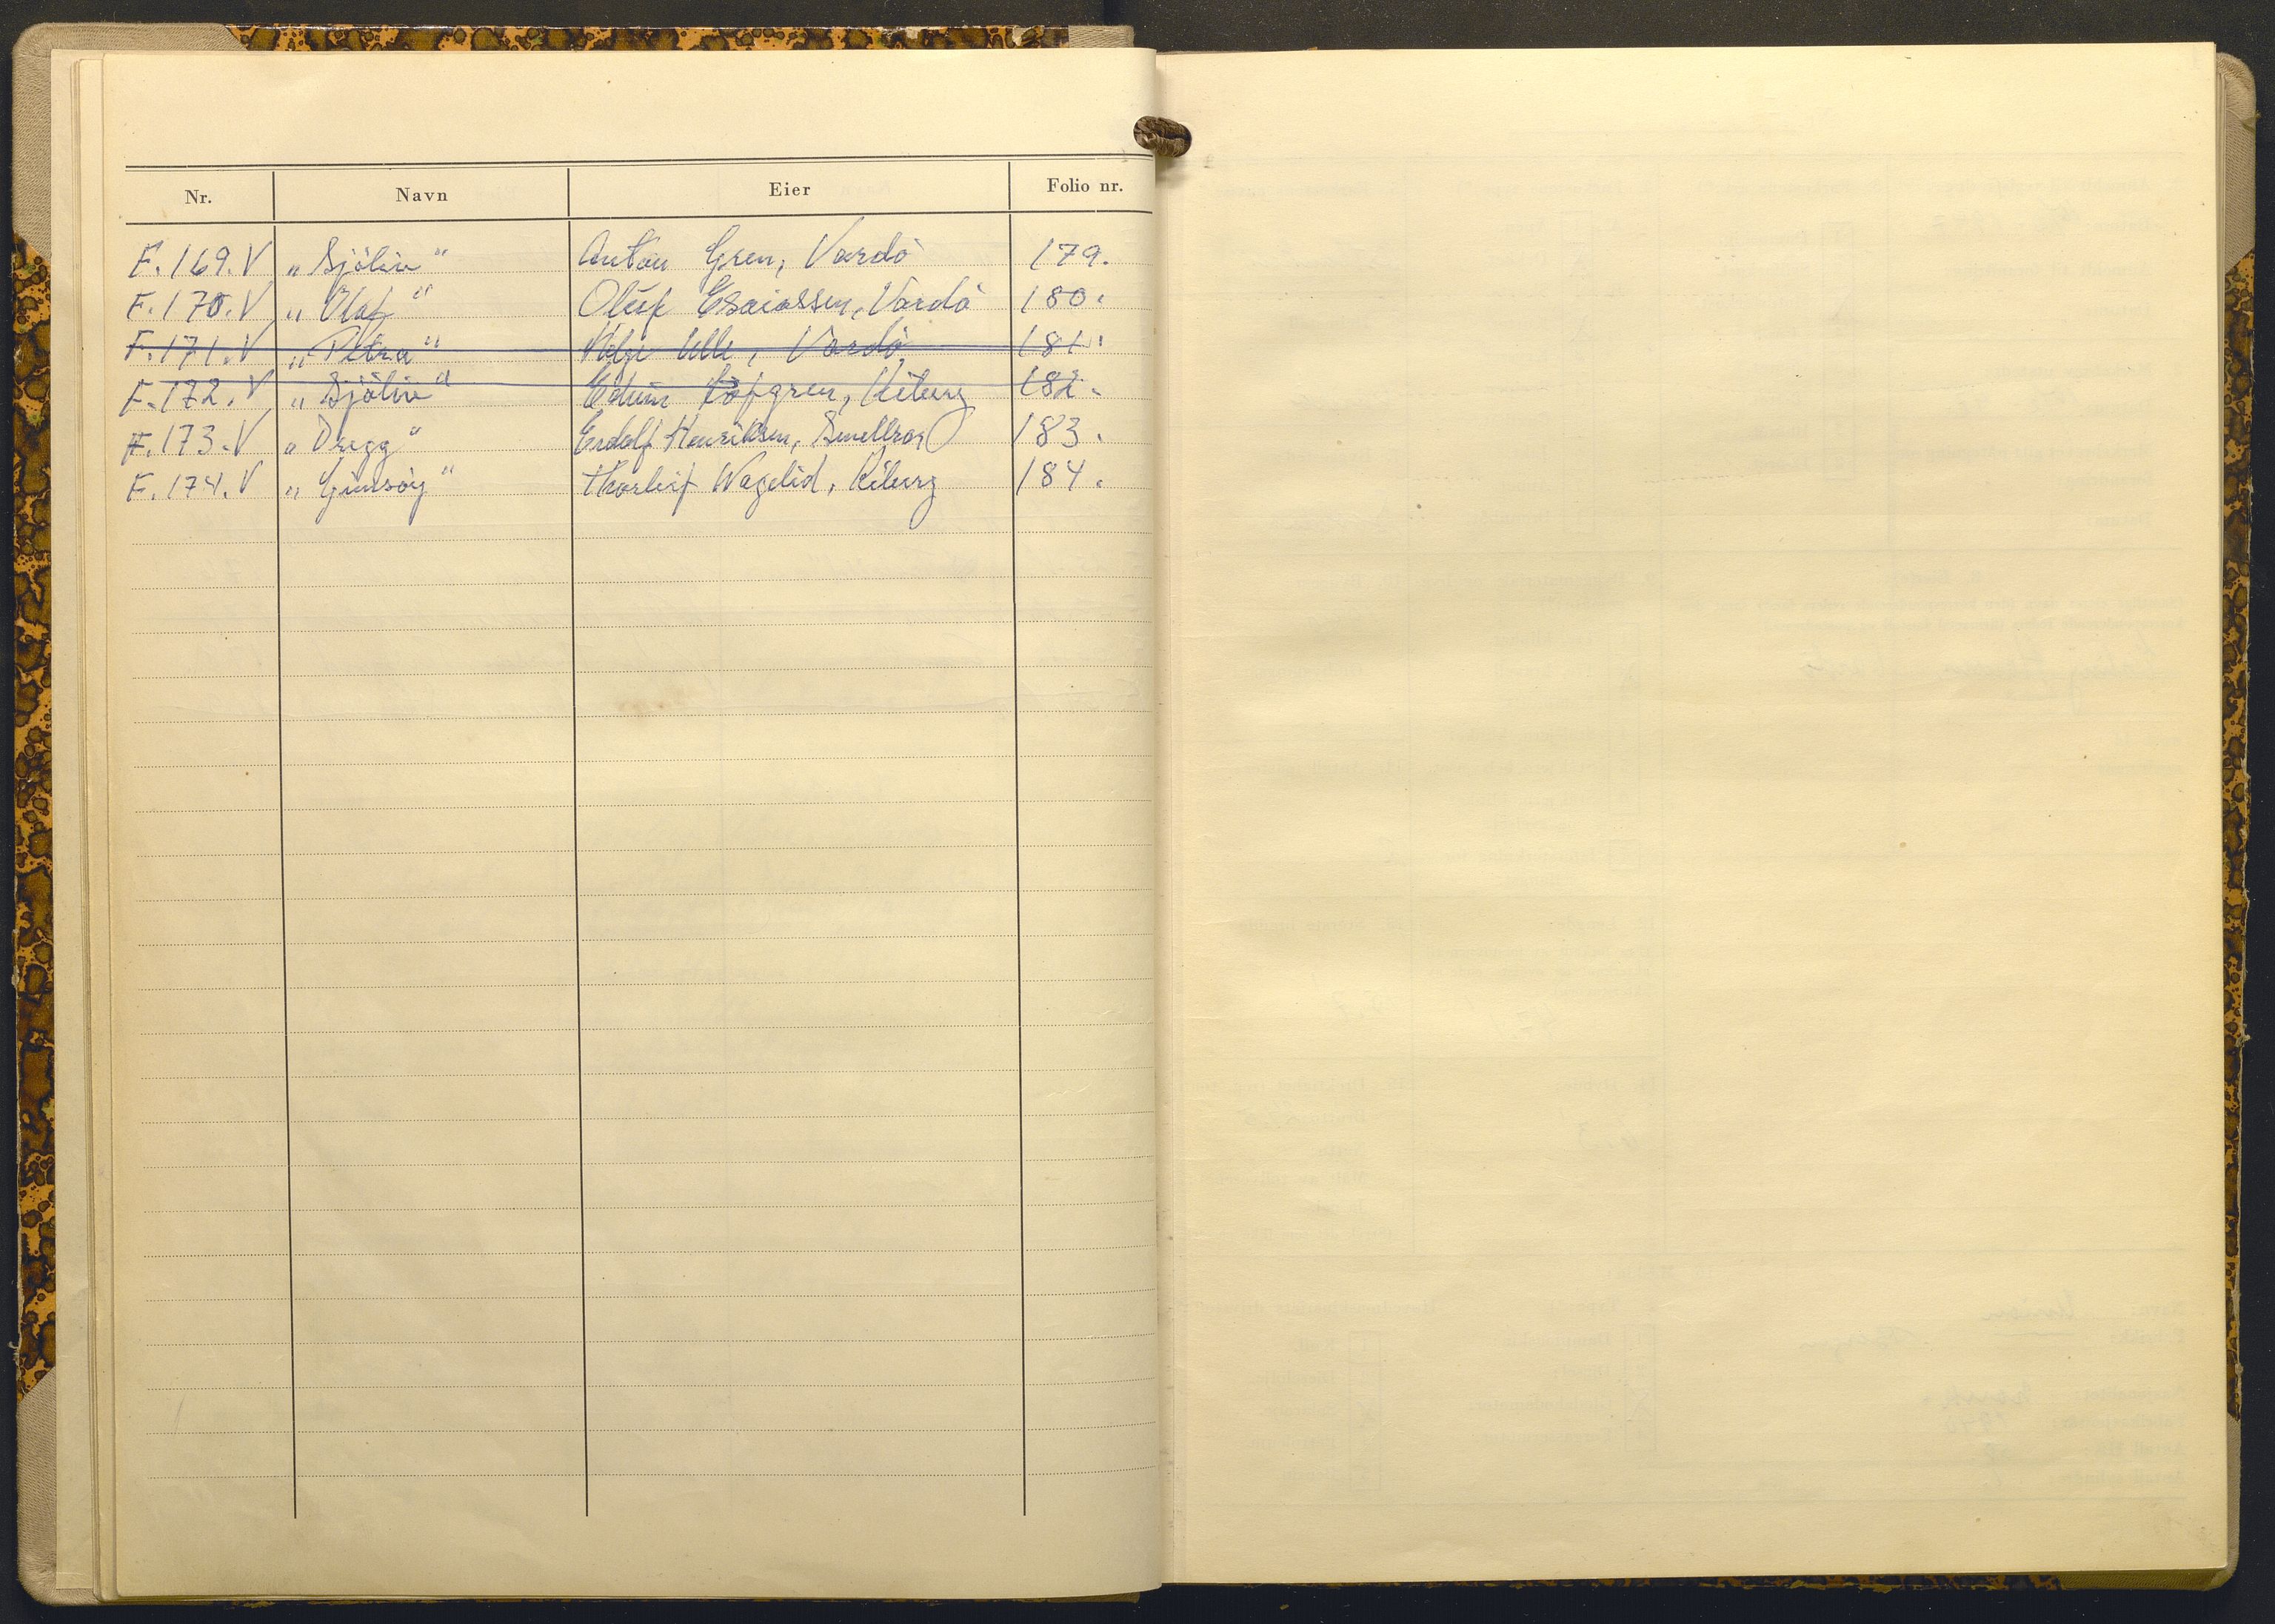 Nr. Navn Eier Folio nr.
F.169.V „Sjöliv“ Anton Gren, Vardö 179.
F.170.V „Olaf“ Oluf Esaiassen, Vardö 180.
F.171.V „Petra“ Helge Ulle, Vardö 181.
F.172.V „Sjöliv“ Edvin Löfgren, Kiberg 182.
F.173.V „Dregg“ Erdolf Henriksen, Smellror 183.
F.174.V „Gimsöy“ Thorleif Wagelid, Kiberg 184.